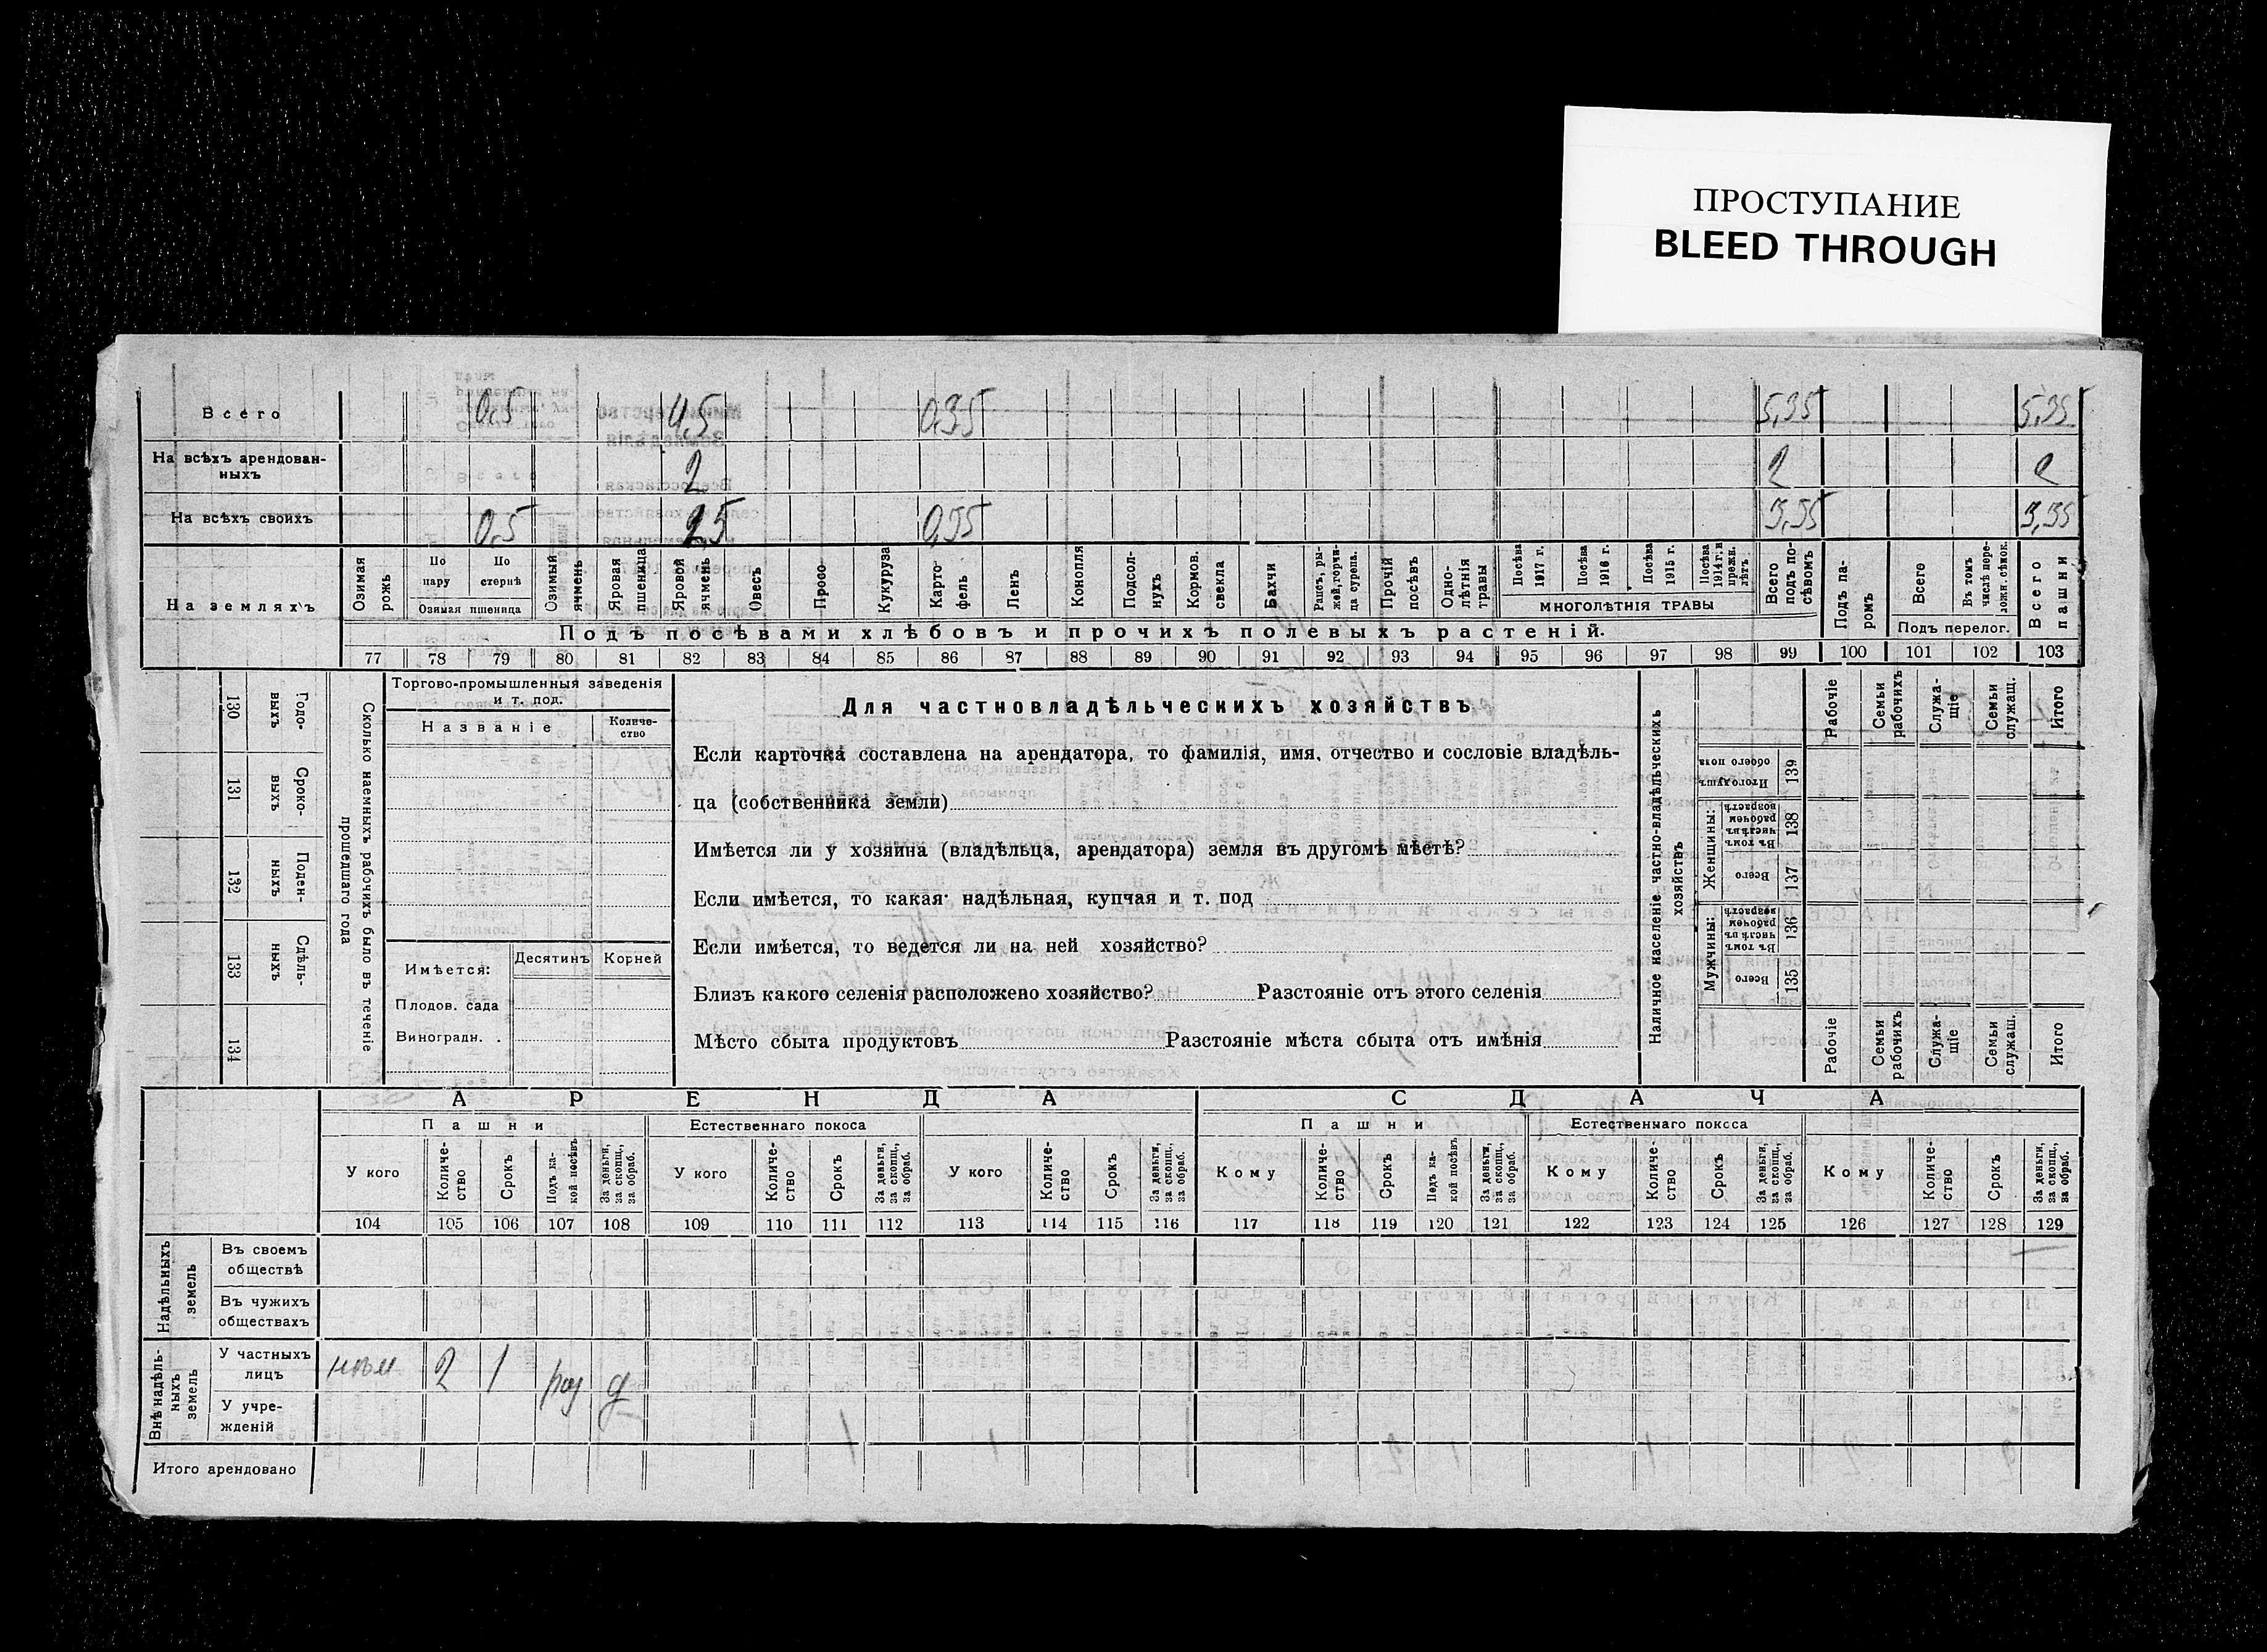 ПРОСТУПАНИЕ
BLEED THROUGH
Всего 0,5 4,5 0,35 5,35 5,35
На всѣхъ арендован-
ныхъ 2 2 2
На всѣхъ своихъ 0,5 2,5 0,35 3,35 3,35
На земляхъ
Озимая рожь
По пару
По стернѣ
Озимая пшеница
Озимый ячмень
Яровая пшеница
Яровой ячмень
Овесъ
Просо
Кукуруза
Карто фель
Ленъ
Конопля
Подсол- нухъ
Кормов. свекла
Бахчи
Рапсъ, ры- жей, горчи- ца сурепа.
Прочій посѣвъ
Одно- лѣтнія травы
Посѣва 1917 г.
Посѣва 1916 г.
Посѣва 1915 г.
Посѣва 1914 г. и прежн. лѣтъ
МНОГОЛѢТНІЯ ТРАВЫ
Всего подъ по- сѣвомъ
Подъ па- ромъ
Всего
Въ томъ числѣ пере- ложн. сѣнок.
Подъ перелог.
Всего пашни
Подъ посѣвами хлѣбовъ и прочихъ полевыхъ растеній.
77 78 79 80 81 82 83 84 85 86 87 88 89 90 91 92 93 94 95 96 97 98 99 100 101 102 103
130 Годо- выхъ
131 Сроко- выхъ
132 Поден- ныхъ
133 Сдѣль- ныхъ
134
Сколько наемныхъ рабочихъ было въ теченіе
прошедшаго года
Торгово-промышленныя заведенія
и т. под.
Названіе
Количе-
ство
Имѣется:
Десятинъ Корней
Плодов. сада
Виноградн.
Для частновладѣльческихъ хозяйствъ
Если карточка составлена на арендатора, то фамилія, имя, отчество и сословіе владѣль-
ца (собственника земли)
Имѣется ли у хозяина (владѣльца, арендатора) земля въ другомъ мѣстѣ?
Если имѣется, то какая: надѣльная, купчая и т. под
Если имѣется, то ведется ли на ней хозяйство?
Близъ какого селенія расположено хозяйство? Разстояніе отъ этого селенія
Мѣсто сбыта продуктовъ Разстояніе мѣста сбыта отъ имѣнія
Наличное населеніе частно-владѣльческихъ
хозяйствъ
Рабочіе
Семьи рабочихъ
Служа- щіе
Семьи служащ.
Итого
Итого душъ обоего пола 139
Женщины:
Въ томъ числѣ въ рабочем возрастѣ 138
Всего 137
Мужчины:
Въ томъ числѣ въ рабочем возрастѣ 136
Всего 135
Рабочіе
Семьи рабочихъ
Служа- щіе
Семьи служащ.
Итого
АРЕНДА
СДАЧА
Пашни
Естественнаго покоса
Пашни
Естественнаго покоса
У кого
Количе- ство
Срокъ
Подъ ка- кой посѣвъ
За деньги, за скопщ., за обраб.
У кого
Количе- ство
Срокъ
За деньги, за скопщ., за обраб.
У кого
Количе- ство
Срокъ
За деньги, за скопщ., за обраб.
Кому
Количе- ство
Срокъ
Подъ ка- кой посѣвъ
За деньги, за скопщ., за обраб.
Кому
Количе- ство
Срокъ
За деньги, за скопщ., за обраб.
Кому
Количе- ство
Срокъ
За деньги, за скопщ., за обраб.
104 105 106 107 108 109 110 111 112 113 114 115 116 117 118 119 120 121 122 123 124 125 126 127 128 129
Надѣльныхъ
земель
Въ своемъ
обществѣ
Въ чужихъ
обществахъ
Внѣ надѣль-
ныхъ
земель
У частныхъ
лицъ 2 1
У учре-
жденій
Итого арендовано